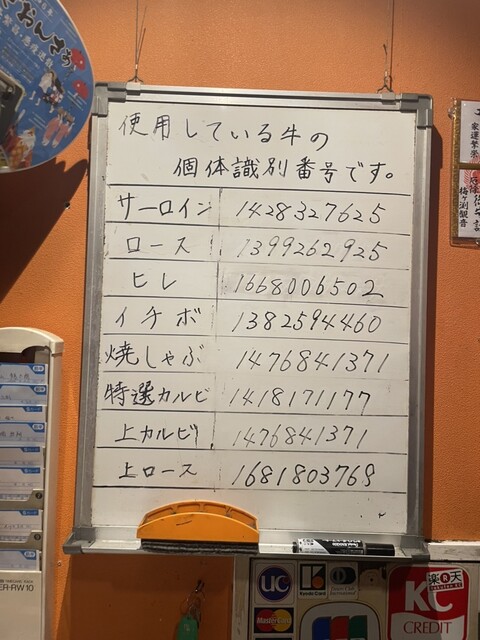 使用している牛の
個体識別番号です。
サーロイン 1428327625
ロース 1399262925
ヒレ 1668006502
イチボ 1382594460
焼しゃぶ 1476841371
特選カルビ 1418171177
上カルビ 1476841371
上ロース 1681803768
家運繁栄
梅ヶ渕観音
ER-RW10
UC
MasterCard
楽天
KC
CREDIT